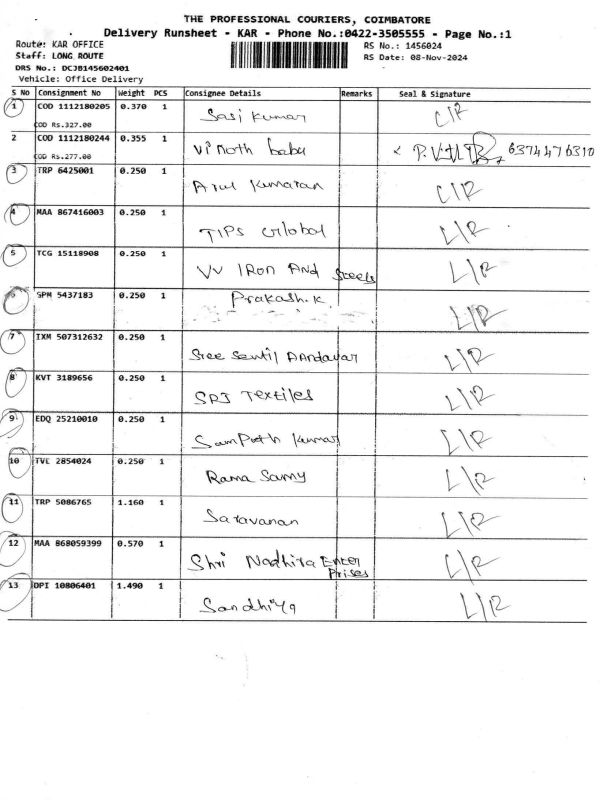 THE PROFESSIONAL COURIERS, COIMBATORE
Delivery Runsheet - KAR - Phone No.:0422-3505555 - Page No.:1
Route: KAR OFFICE RS No.: 1456024
Staff: LONG ROUTE RS Date: 08-Nov-2024
DRS No.: DC3B145602401
Vehicle: Office Delivery
S No Consignment No Weight PCS Consignee Details Remarks Seal & Signature
1 COD 1112180205 0.370 1 Sasi kumar L/R
COD Rs.327.00
2 COD 1112180244 0.355 1 Vinoth babu 6374476310
COD Rs.277.00
3 TRP 6425001 0.250 1 Arul kumaran L/R
4 MAA 867416003 0.250 1 TIPS Global L/R
5 TCG 15118908 0.250 1 VV IRON AND Steels L/R
6 SPM 5437183 0.250 1 Prakash.k L/R
7 IXM 507312632 0.250 1 Sree Sentil AAndavar L/R
8 KVT 3189656 0.250 1 SRI Textiles L/R
9 EDQ 25210010 0.250 1 Sampath kumar L/R
10 TVE 2854024 0.250 1 Rama Samy L/R
11 TRP 5086765 1.160 1 Saravanan L/R
12 MAA 868059399 0.570 1 Shri Nadhira Enter L/R
Prises
13 DPI 10806401 1.490 1 Sandhiya L/R